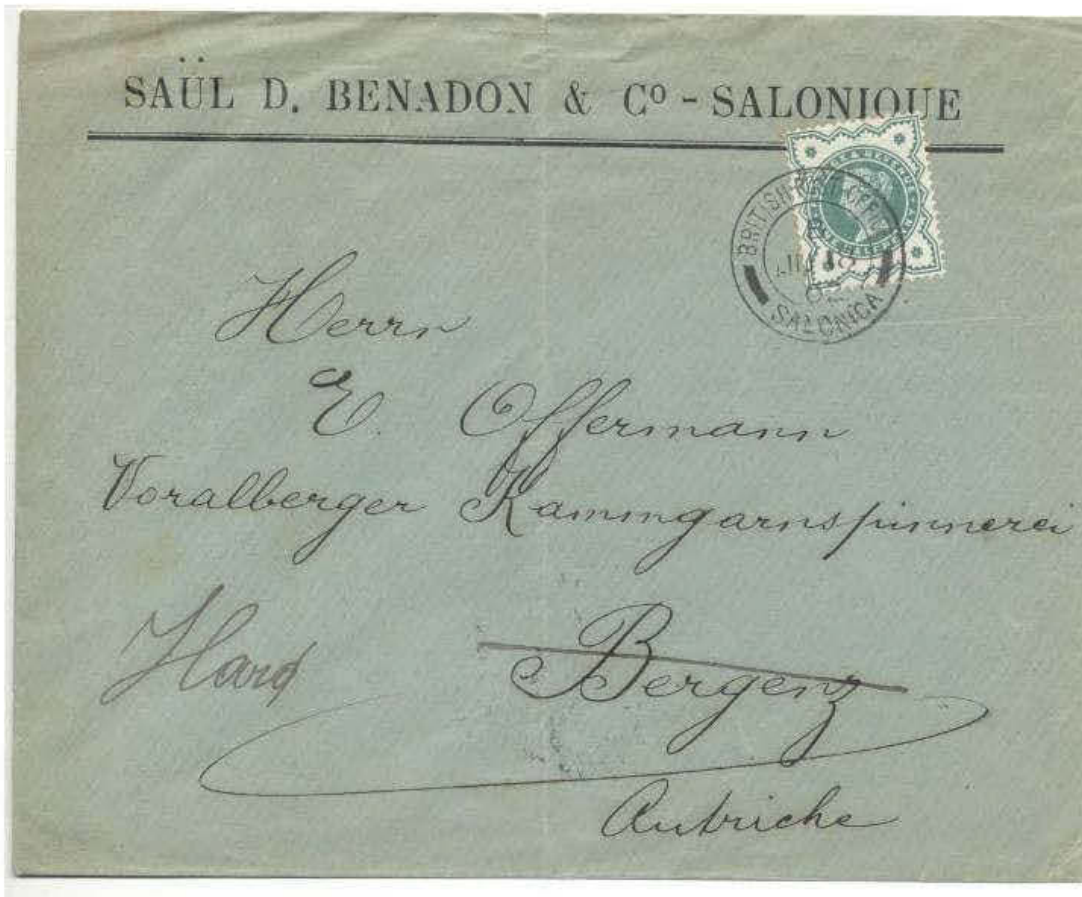 SAÜL D. BENADON & Cº - SALONIQUE
BRITISH POST OFFICE
SALONICA
Herrn
E. Offermann
Voralberger Kammgarnspinnerei
Hard
Bergenz
Autriche